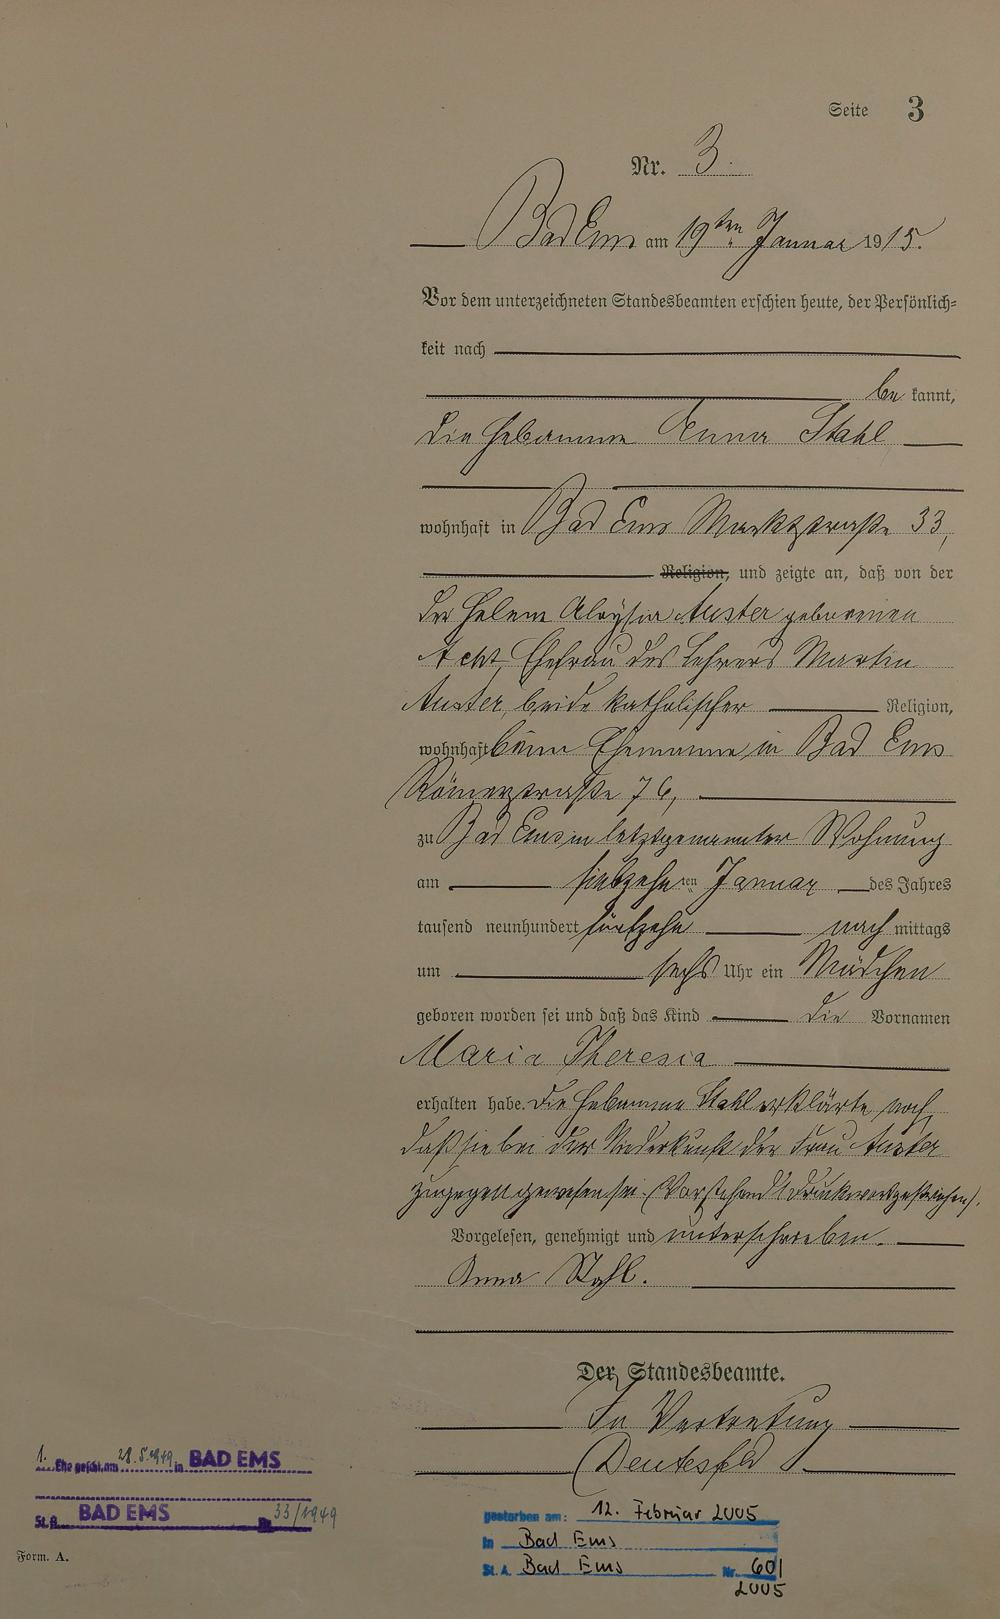 Seite 3
Nr. 3.
Bad Ems am 19ten Januar 1915.
Vor dem unterzeichneten Standesbeamten erschien heute, der Persönlich=
keit nach
be kannt,
die Hebamme Anna Stahl
wohnhaft in Bad Ems Marktstraße 33,
Religion, und zeigte an, daß von der
der Helene Aloysia Auster geborenen
Acht, Ehefrau des Lehrers Martin
Auster, beide katholischer Religion,
wohnhaft beim Ehemanne in Bad Ems
Römerstraße 76,
zu Bad Ems in letztgenannter Wohnung
am siebzehnten Januar des Jahres
tausend neunhundert fünfzehn nach mittags
um sechs Uhr ein Mädchen
geboren worden sei und daß das Kind die Vornamen
Maria Theresia
erhalten habe. Die Hebamme Stahl erklärte noch,
daß sie bei der Niederkunft der Frau Auster
zugegen gewesen sei. (Vorstehend 1 Druckwort gestrichen).
Vorgelesen, genehmigt und unterschrieben.
Anna Stahl.
Der Standesbeamte.
In Vertretung
1. Ehe geschl. am 28.5.1949 in BAD EMS
St. A. BAD EMS Nr. 33/1949
gestorben am: 12. Februar 2005
in Bad Ems
St. A. Bad Ems Nr. 60/
2005
Form. A.